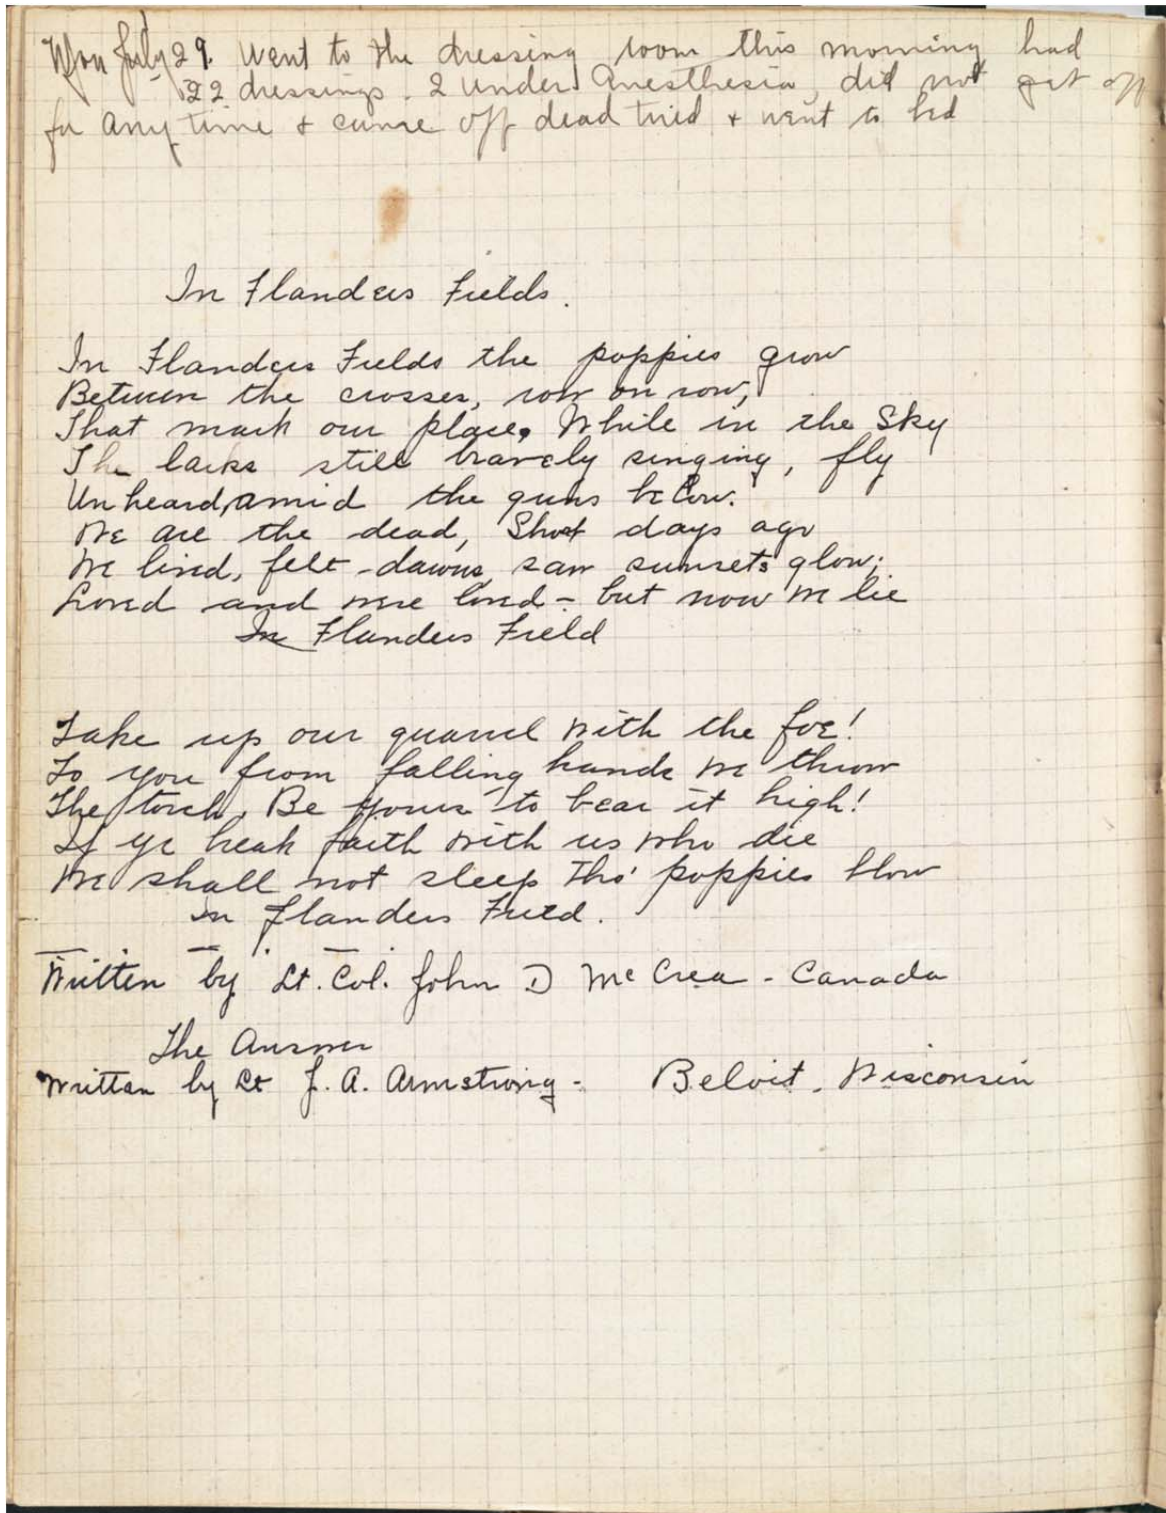 Mon July 29. Went to the dressing room this morning had
22 dressings. 2 under Anesthesia, did not get off
for any time & came off dead tired & went to bed
In Flanders Fields.
In Flanders Fields the poppies grow
Between the crosses, row on row,
That mark our place. While in the Sky
The larks still bravely singing, fly
Unheard, amid the guns below.
We are the dead, Short days ago
We lived, felt dawns, saw sunsets glow;
Loved and were loved - but now we lie
In Flanders Field
Take up our quarrel with the foe!
To you from falling hands we throw
The torch. Be yours to bear it high!
If ye break faith with us who die
We shall not sleep tho' poppies blow
in Flanders Field.
Written by Lt. Col. John D McCrea - Canada
The Answer
Written by Lt J. A. Armstrong - Beloit, Wisconsin